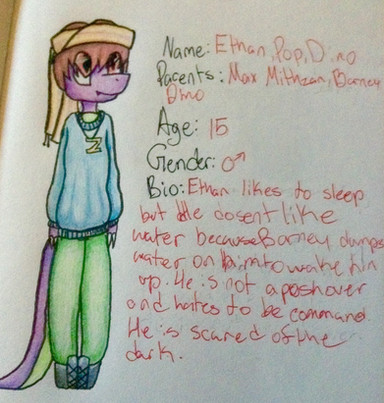 Name: Ethan, Pop, Dino
Parents: Max Mithzan, Barney
Dino
Age: 15
Gender: ♂
Bio: Ethan likes to sleep
but he dosent like
water because Barney dumps
water on him to wake him
up. He is not a poshover
and hates to be command
He is scared of the
dark.
Z